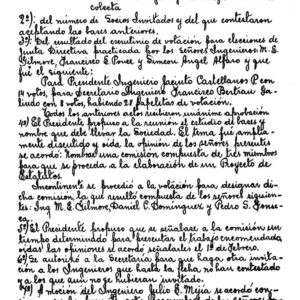 colecta
2º): del número de Socios Invitados y del que contestaron
aceptando las bases anteriores.
3º) Del resultado del escrutinio de votación para elecciones de
Junta Directiva practicada por los señores Ingenieros: M. E.
Gilmore, Francisco E. Ponce y Simeon Angel Alfaro y que
fué el siguiente:
Para Presidente Ingeniero Jacinto Castellanos P. con
14 votos, para Secretario Ingeniero Francisco Bertrau Ga-
lindo con 8 votos, habiendo 28 papeletas de votación.
Todos los anteriores actos recibieron unánime aprobación
4º) El Presidente propuso a la reunión el estudio de bases y
nombre que debe llevar la Sociedad. El tema fué amplia-
mente discutido y oida la opinion de los señores presentes
se acordó: Nombrar una comisión compuesta de tres miembros
para que se proceda a la elaboración de un Proyecto de
Estatutos.
Incontinente se procedió a la votación para designar di-
cha comisión la que resultó compuesta de los señores siguien-
tes: Ing. M. E. Gilmore, Daniel C. Dominguez y Pedro S. Fonse-
ca.
5º) El Presidente propuso que se señalase a la comisión un
tiempo determinado para presentar el trabajo recomendado,
oidas las opiniones se acordó señalarles el 1º de Febrero.
6º) Se autorizó a la Secretaría para que haga otra invita-
ción a los Ingenieros que hasta la fecha, no han contestado
y a los que aún no se hubieran invitado.
7º) A moción del Ingeniero Julio E. Mejía se acordó con-